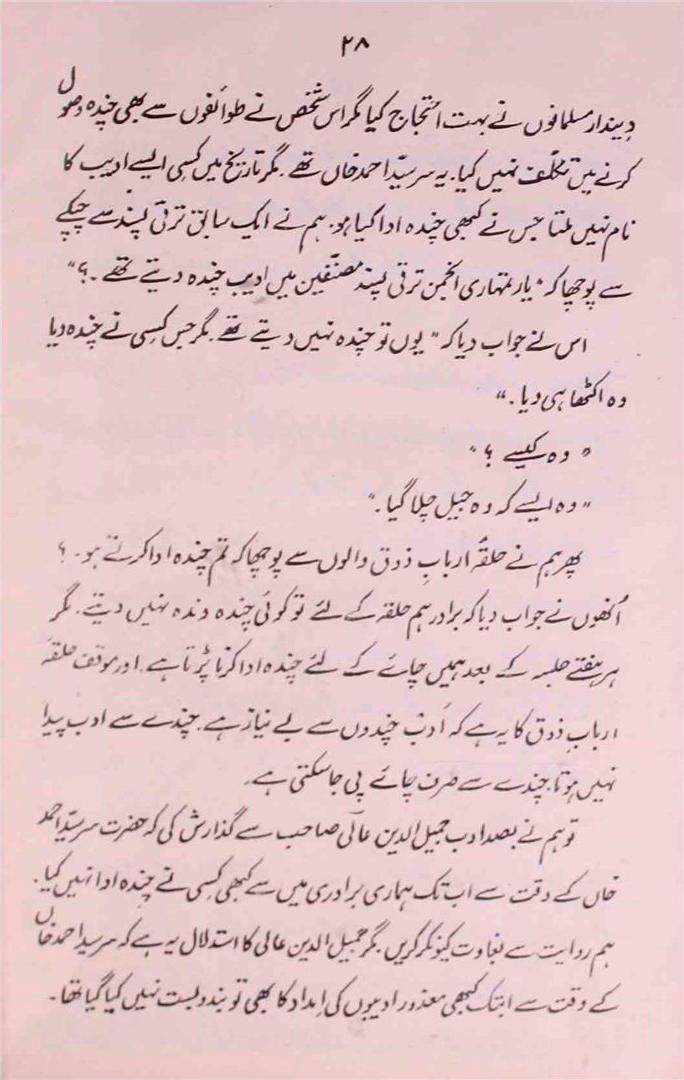 ۲۸
دیندار مسلمانوں نے بہت احتجاج کیا مگر اس شخص نے طوائفوں سے بھی چندہ وصول
کرنے میں تکلّف نہیں کیا۔ یہ سر سیّد احمد خاں تھے۔ مگر تاریخ میں کسی ایسے ادیب کا
نام نہیں ملتا جس نے کبھی چندہ ادا کیا ہو۔ ہم نے ایک سابق ترقی پسند سے چپکے
سے پوچھا کہ " یار تمہاری انجمن ترقی پسند مصنّفین میں ادیب چندہ دیتے تھے۔؟"
اس نے جواب دیا کہ " یوں تو چندہ نہیں دیتے تھے۔ مگر جس کسی نے چندہ دیا
وہ اکٹھا ہی دیا۔"
" وہ کیسے ؟ "
" وہ ایسے کہ وہ جیل چلا گیا۔"
پھر ہم نے حلقۂ اربابِ ذوق والوں سے پوچھا کہ تم چندہ ادا کرتے ہو۔؟
اُنھوں نے جواب دیا کہ برادر ہم حلقہ کے لئے تو کوئی چندہ وندہ نہیں دیتے۔ مگر
ہر ہفتے جلسہ کے بعد ہمیں چائے کے لئے چندہ ادا کرنا پڑتا ہے۔ اور موقف حلقۂ
اربابِ ذوق کا یہ ہے کہ اَدب چندوں سے بے نیاز ہے۔ چندے سے ادب پیدا
نہیں ہوتا۔ چندے سے صرف چائے پی جا سکتی ہے۔
تو ہم نے بصد ادب جمیل الدین عالی صاحب سے گذارش کی کہ حضرت سر سیّد احمد
خاں کے وقت سے اب تک ہماری برادری میں سے کبھی کسی نے چندہ ادا نہیں کیا۔
ہم روایت سے بغاوت کیونکر کریں۔ مگر جمیل الدین عالی کا استدلال یہ ہے کہ سر سید احمد خاں
کے وقت سے ابتک کبھی معذور ادیبوں کی امداد کا بھی تو بندوبست نہیں کیا گیا تھا۔